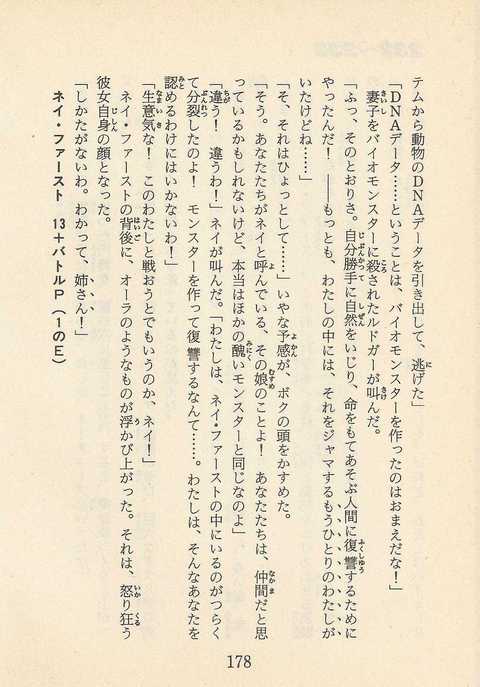 テムから動物のDNAデータを引き出して、逃げた」
「DNAデータ……ということは、バイオモンスターを作ったのはおまえだな!」
妻子をバイオモンスターに殺されたルドガーが叫んだ。
「ふっ、そのとおりさ。自分勝手に自然をいじり、命をもてあそぶ人間に復讐するために
やったんだ! ――もっとも、わたしの中には、それをジャマするもうひとりのわたしが
いたけどね……」
「そ、それはひょっとして……」いやな予感が、ボクの頭をかすめた。
「そう。あなたたちがネイと呼んでいる、その娘のことよ! あなたたちは、仲間だと思
っているかもしれないけど、本当はほかの醜いモンスターと同じなのよ」
「違う! 違うわ!」ネイが叫んだ。「わたしは、ネイ・ファーストの中にいるのがつらく
て分裂したのよ! モンスターを作って復讐するなんて……。わたしは、そんなあなたを
認めるわけにはいかないわ!」
「生意気な! このわたしと戦おうとでもいうのか、ネイ!」
ネイ・ファーストの背後に、オーラのようなものが浮かび上がった。それは、怒り狂う
彼女自身の顔となった。
「しかたがないわ。わかって、姉さん!」
ネイ・ファースト 13+バトルP(1のE)
178